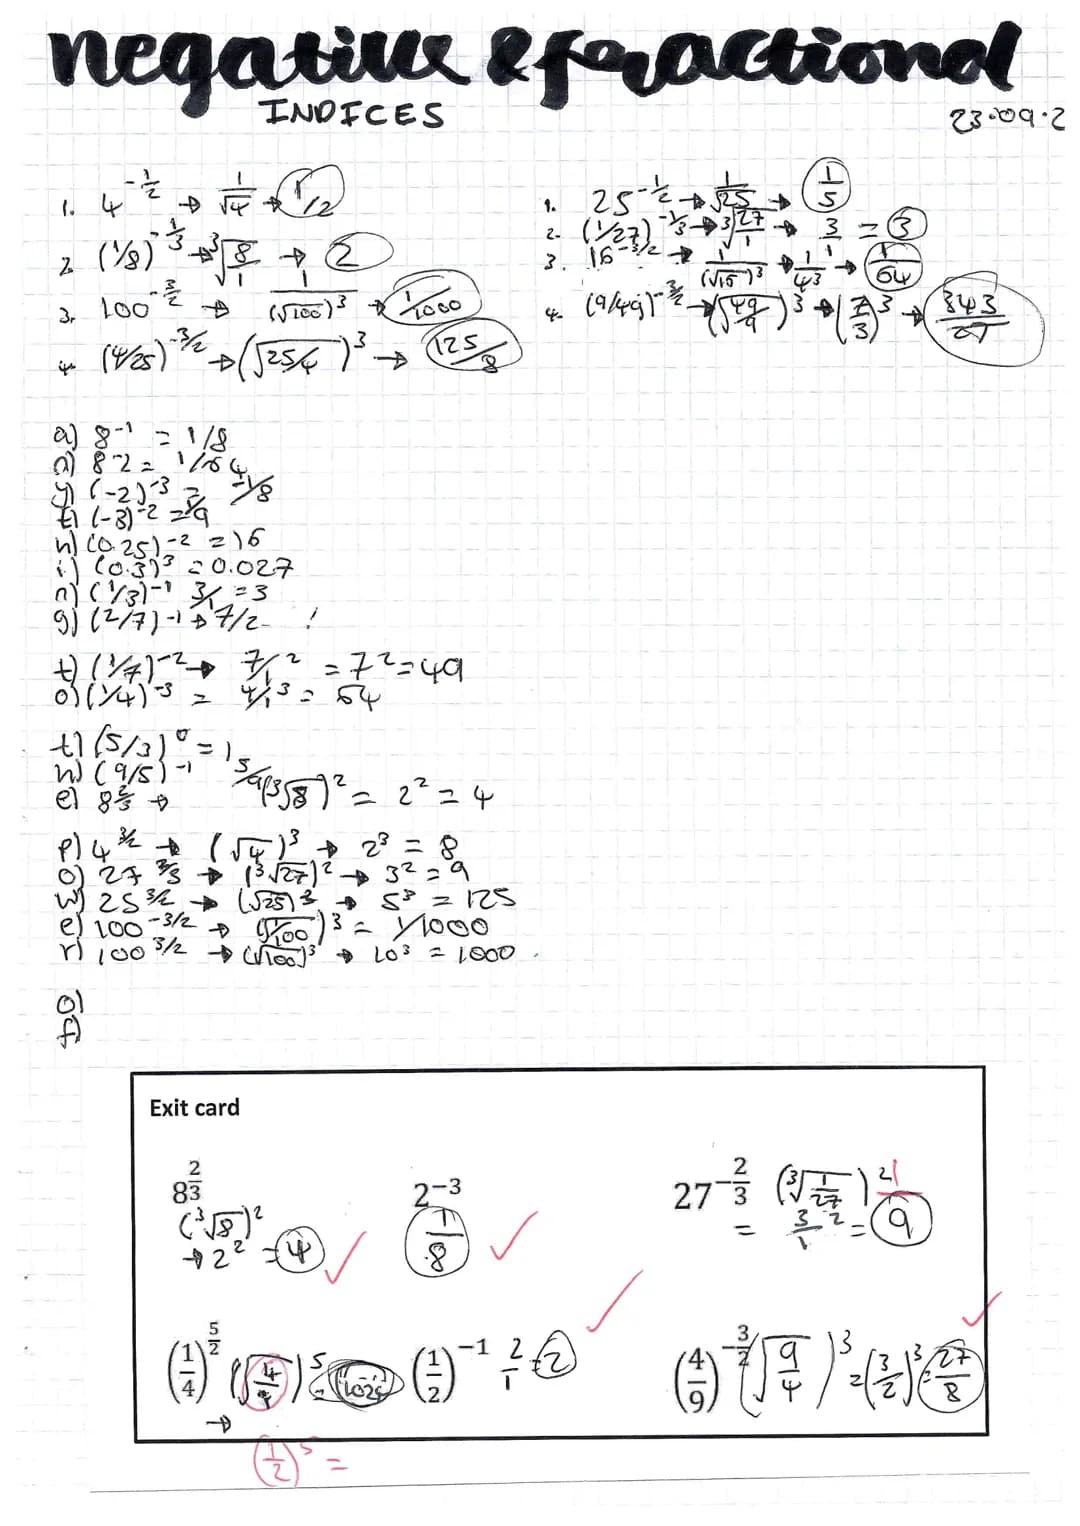 negative & fractional
INDICES
23.09.2
1. 4^{-1/2} → 1/√4 → 1/2
2. (1/8)^{-1/3} → ³√(8/1) → 2
3. 100^{-3/2} → 1/(√100)³ → 1/1000
4. (4/25)^{-3/2} → (√25/4)³ → 125/8
1. 25^{-1/2} → 1/√25 → 1/5
2. (1/27)^{-1/3} → ³√(27/1) → 3/1 = 3
3. 16^{-3/2} → 1/(√16)³ → 1/4³ → 1/64
4. (9/49)^{-3/2} → (√49/9)³ → (7/3)³ → 343/27
a) 8⁻¹ = 1/8
n) 8⁻² = 1/64
y) (-2)⁻³ = -1/8
t) (-3)⁻² = 1/9
h) (0.25)⁻² = 16
i) (0.3)³ = 0.027
n) (1/3)⁻¹ 3/1 = 3
g) (2/7)⁻¹ → 7/2 !
t) (1/7)⁻² → 7/1² = 7² = 49
o) (1/4)⁻³ = 4/1³ = 64
t) (5/3)⁰ = 1
h) (9/5)⁻¹ 5/9
e) 8^{2/3} → (³√8)² = 2² = 4
p) 4^{3/2} → (√4)³ → 2³ = 8
o) 27^{2/3} → (³√27)² → 3² = 9
w) 25^{3/2} → (√25)³ → 5³ = 125
e) 100^{-3/2} → (√1/100)³ = 1/1000
r) 100^{3/2} → (√100)³ → 10³ = 1000.
o)
f)
Exit card
8^{2/3}
(³√8)²
→ 2² = 4
2⁻³
1/8
27^{-2/3} (³√(1/27))²
= 3/1² = 9
(1/4)^{5/2} (√4/1)⁵ = 1024
→
(1/2)⁵ =
(1/2)⁻¹ 2/1 = 2
(4/9)^{-3/2} (√9/4)³ = (3/2)³ = 27/8